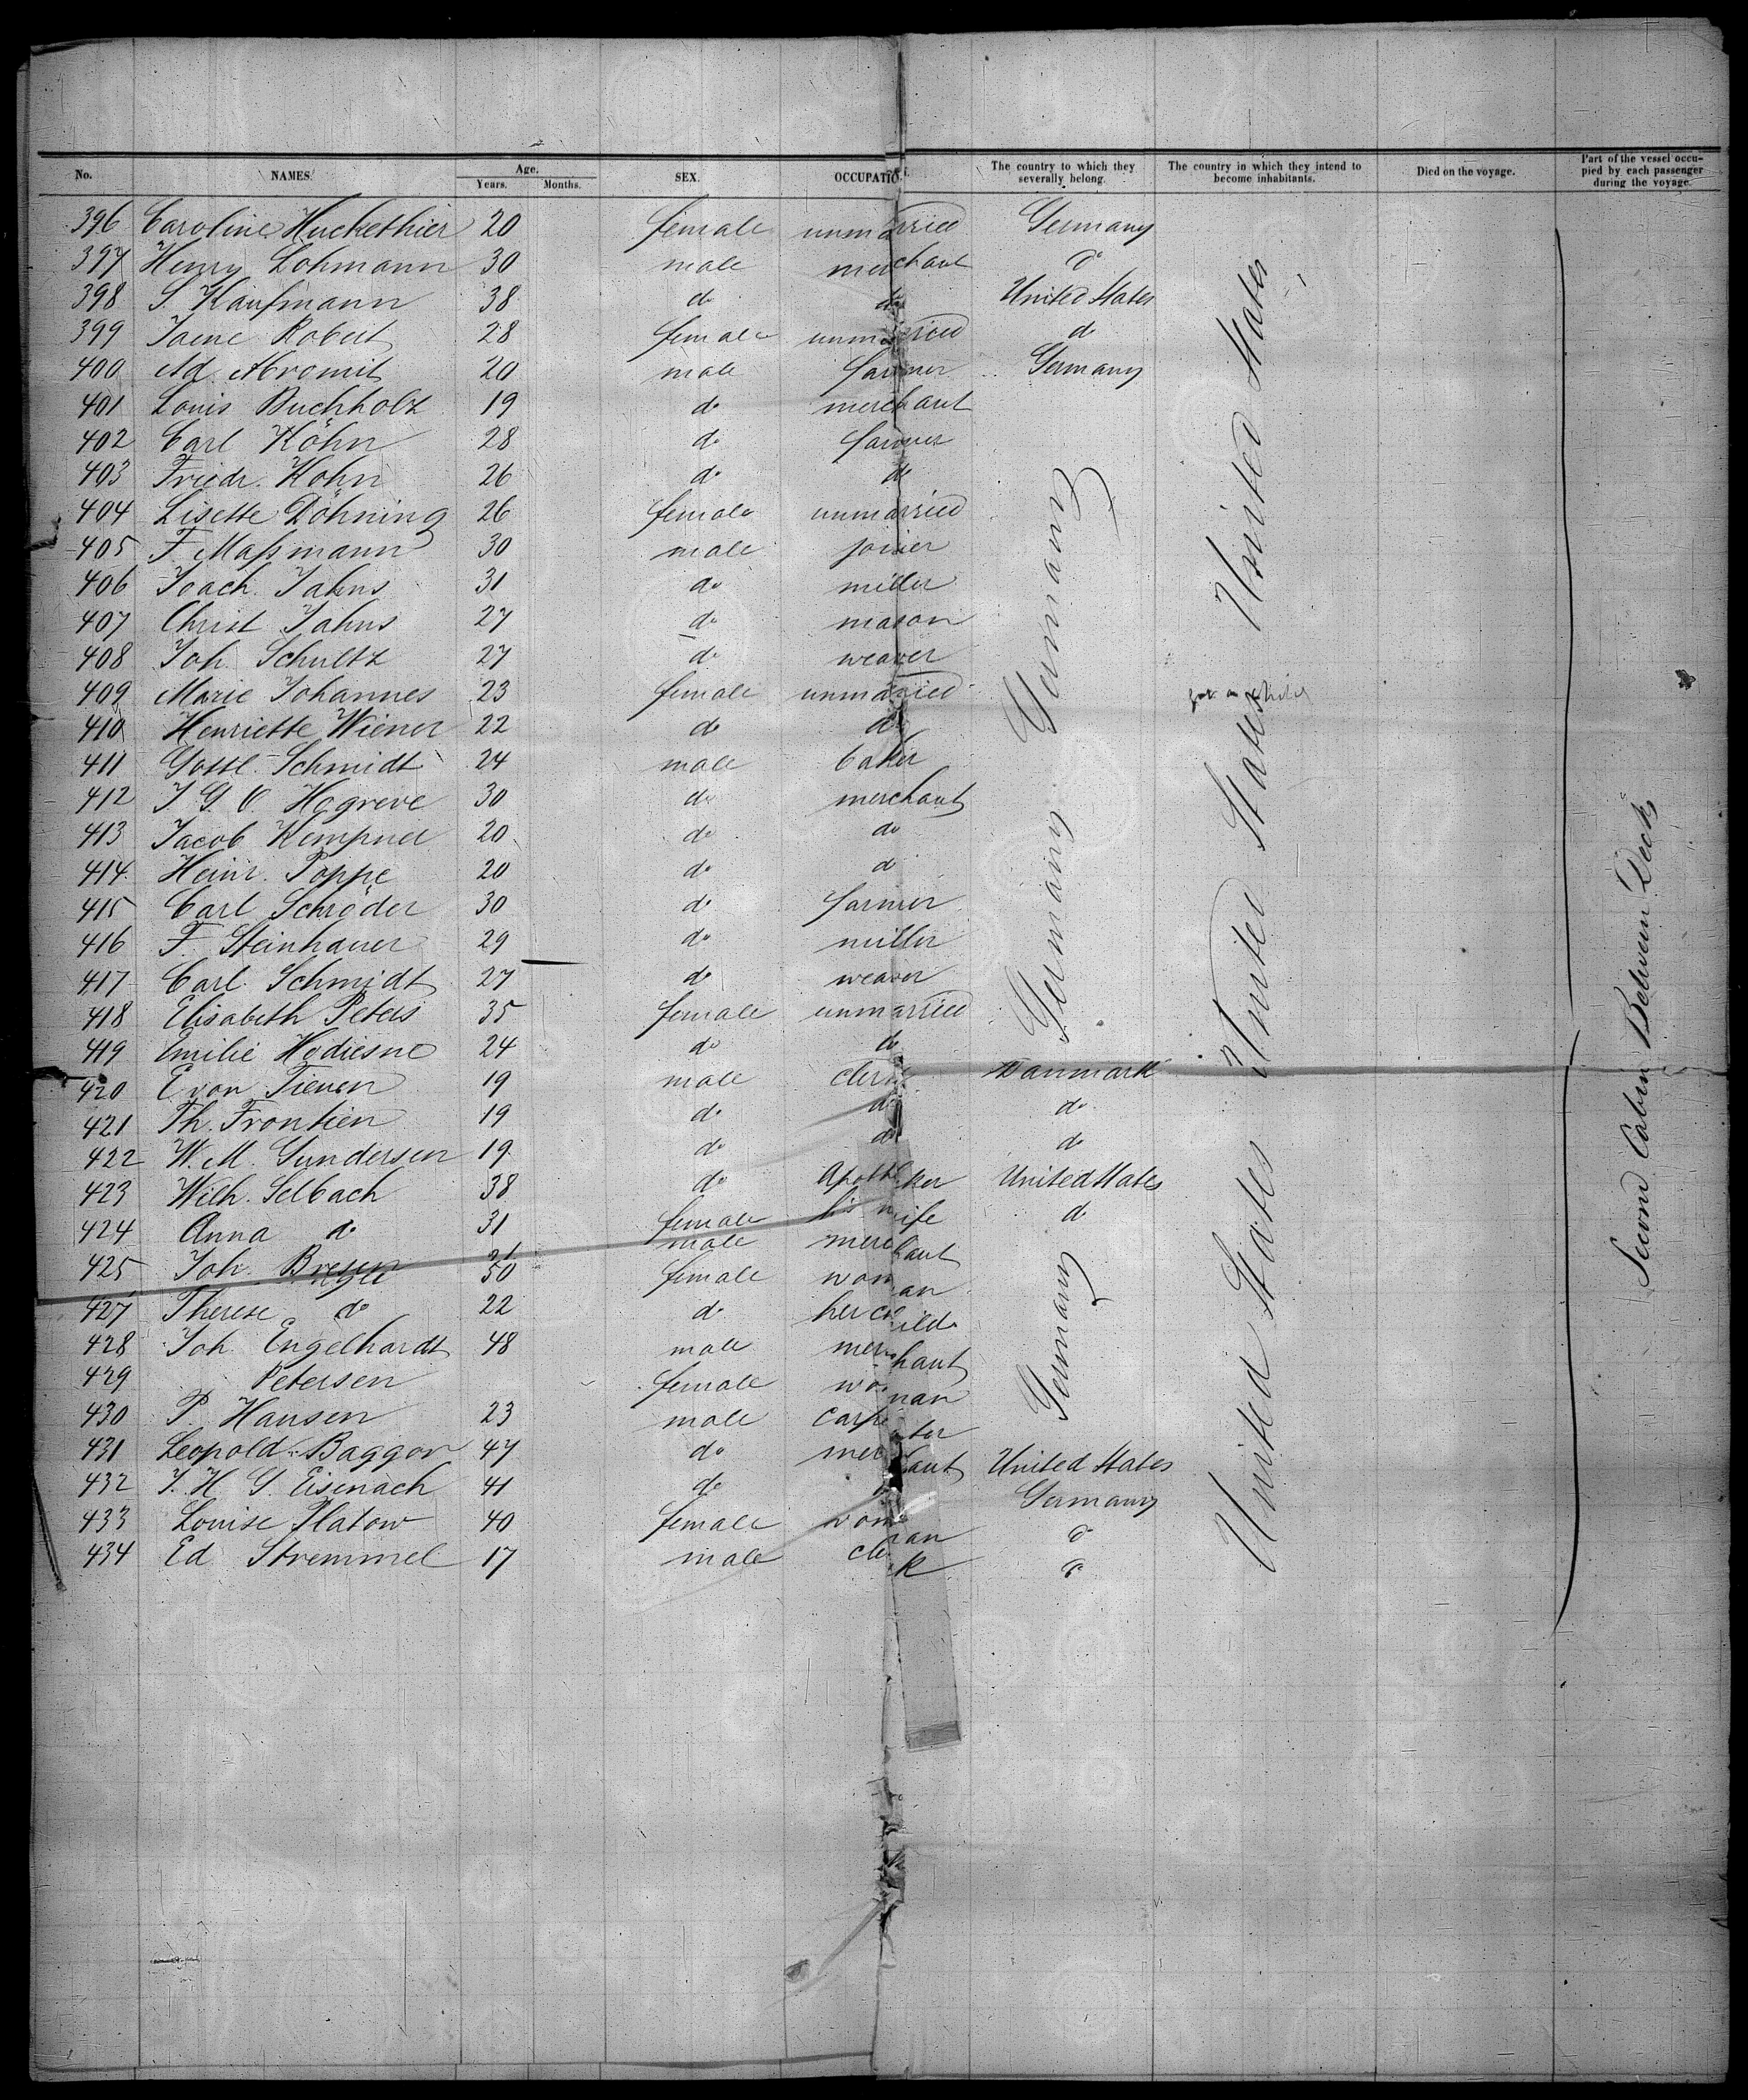 No. NAMES. Age. Years. Months. SEX. OCCUPATIO The country to which they severally belong. The country in which they intend to become inhabitants. Died on the voyage. Part of the vessel occupied by each passenger during the voyage.
396 Caroline Huckethier 20 female unmarried Germany
397 Henry Lohmann 30 male merchant do
398 S. Kaufmann 38 do do United States
399 Jaene Robert 28 female unmarried do
400 Ad. Abromit 20 male farmer Germany
401 Louis Buchholz 19 do merchant
402 Carl Köhn 28 do farmer
403 Friedr. Kohn 26 do do
404 Lisette Döhning 26 female unmarried
405 F. Maßmann 30 male joiner
406 Joach. Jahns 31 do miller
407 Christ Jahns 27 do mason
408 Joh. Schultz 27 do weaver
409 Marie Johannes 23 female unmarried
410 Henriette Wiener 22 do do
411 Gottl. Schmidt 24 male baker
412 J. G. O Hogreve 30 do merchant
413 Jacob Kempner 20 do do
414 Heinr. Poppe 20 do do
415 Carl Schröder 30 do farmer
416 F. Steinhauer 29 do miller
417 Carl Schmidt 27 do weaver
418 Elisabeth Peters 35 female unmarried
419 Emilie 24 do do
420 E von Tienen 19 male clerk Danmark
421 Th. Frontien 19 do do do
422 W. M. Gundersen 19 do do do
423 Wilh. Selbach 38 do Apotheker United States
424 Anna do 31 female his wife do
425 Joh. male merchant
50 female woman
427 Therese do 22 do her child
428 Joh. Engelhardt 48 male merchant
429 Petersen female woman
430 P. Hansen 23 male carpenter
431 Leopold Baggor 47 do merchant United States
432 J. H. G. Eisenach 41 do Germany
433 Louise Platow 40 female woman do
434 Ed Stremmel 17 male clerk do
Germany Germany Germany
United States United States United States
Second Cabin Between Deck